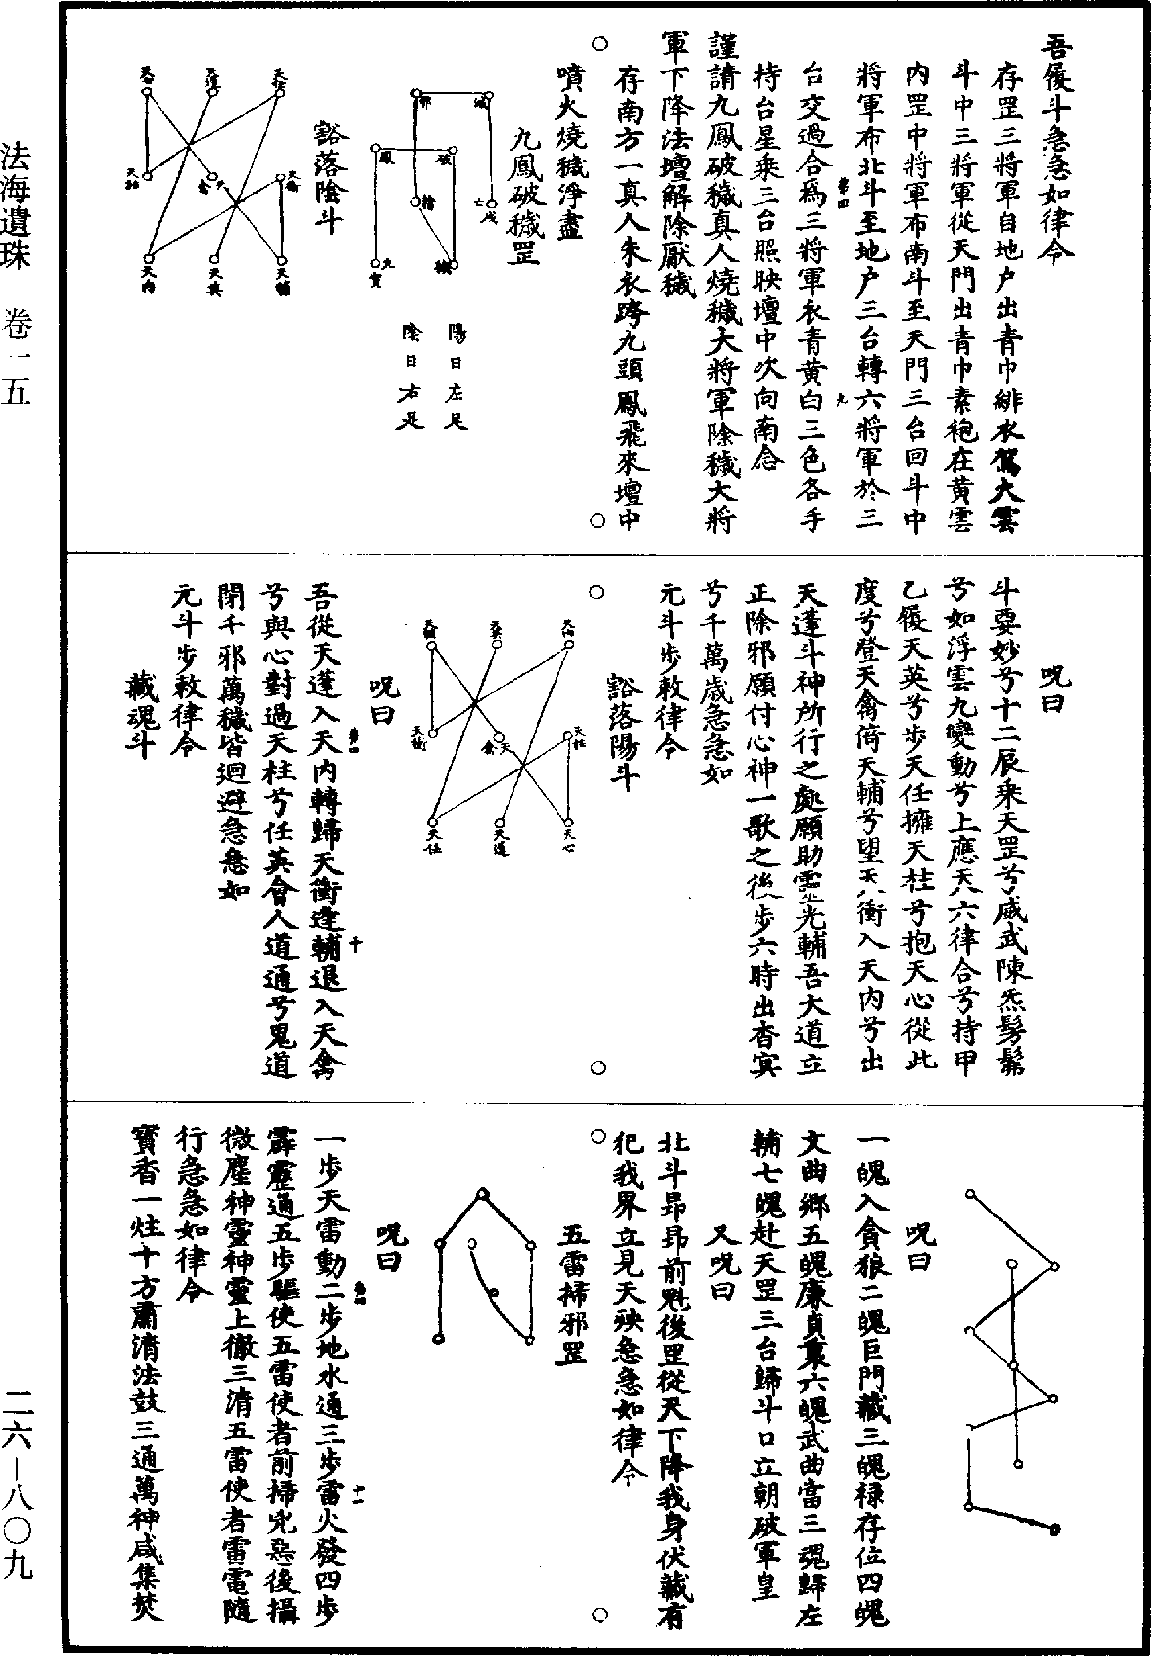 吾履斗急急如律令
存罡三將軍自地户出青巾緋衣駕大雲
斗中三將軍從天門出青巾素袍在黄雲
内罡中將軍布南斗至天門三台回斗中
將軍布北斗至地户三台轉六將軍於三
台交過合爲三將軍衣青黄白三色各手
持台星乘三台照映壇中次向南念
謹請九鳳破穢真人燒穢大將軍除穢大將
軍下降法壇解除厭穢
存南方一真人朱衣跨九頭鳳飛來壇中
噴火燒穢淨盡
九鳳破穢罡
陽日左足
陰日右足
豁落陰斗
天禽
天輔
天英
天内
天柱
天衝
呪曰
斗要妙兮十二辰乘天罡兮威武陳炁髣髴
兮如浮雲九變動兮上應天六律合兮持甲
乙履天英兮步天任擁天柱兮抱天心從此
度兮登天禽倚天輔兮望天衝入天内兮出
天蓬斗神所行之處願助靈光輔吾大道立
正除邪願付心神一歌之後步六時出杳冥
兮千萬歲急急如
元斗步敕律令
豁落陽斗
天輔
天英
天内
天衝
天禽
天柱
天任
天蓬
天心
呪曰
吾從天蓬入天内轉歸天衝逢輔退入天禽
兮與心對過天柱兮任英會人道通兮鬼道
閉千邪萬穢皆迴避急急如
元斗步敕律令
藏魂斗
呪曰
一魄入貪狼二魄巨門藏三魄禄存位四魄
文曲鄉五魄廉貞裏六魄武曲當三魂歸左
輔七魄赴天罡三台歸斗口立朝破軍皇
又呪曰
北斗昂昂前魁後罡從天下降我身伏藏有
犯我界立見天殃急急如律令
五雷掃邪罡
呪曰
一步天雷動二步地水通三步雷火發四步
霹靂通五步驅使五雷使者前掃兇惡後攝
微塵神靈神靈上徹三清五雷使者雷電隨
行急急如律令
寶香一炷十方肅清法鼓三通萬神咸集焚
法海遺珠 卷一五
二六－八〇九